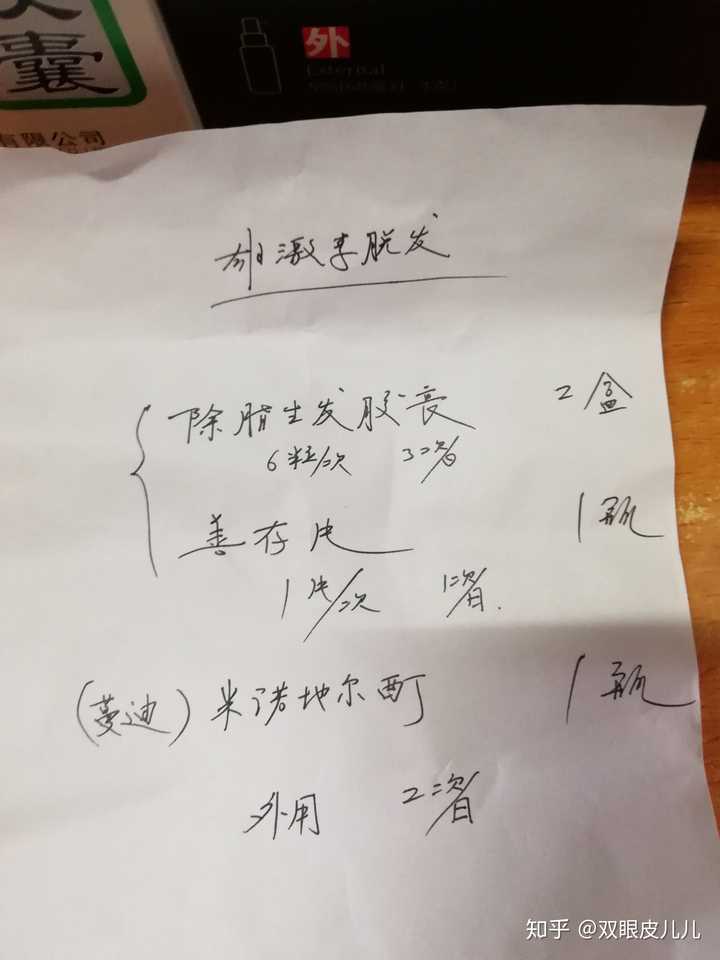 囊
外
External
有限公司
雄激素脱发
除脂生发胶囊 2盒
6粒/次 3次/日
善存片 1瓶
1片/次 1次/日.
(蔓迪)米诺地尔酊 1瓶
外用 2次/日
知乎 @双眼皮儿儿